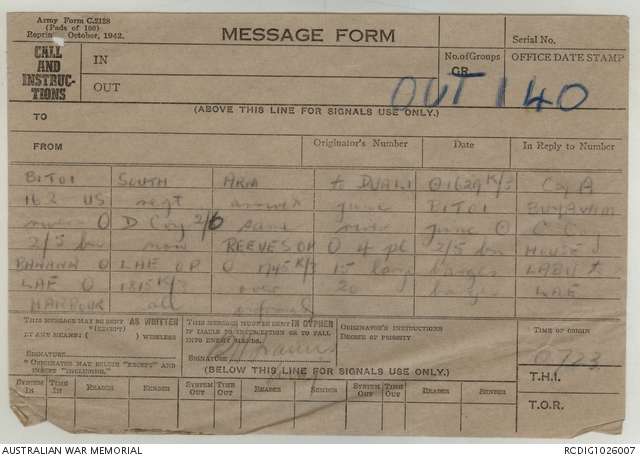 Army Form C.2128
(Pads of 100)
Reprint October, 1942.
MESSAGE FORM
Serial No.
CALL AND INSTRUC-TIONS
IN
No. of Groups GR.
OFFICE DATE STAMP
OUT
OUT 140
(ABOVE THIS LINE FOR SIGNALS USE ONLY.)
TO
FROM
Originator's Number
Date
In Reply to Number
BITOI SOUTH ARM to DUALI 0 1629K/3 Coy A
162 US regt june BITOI BUYAWIM
river 0 D Coy 2/6 same river june 0 C Coy
2/5 bn now REEVES OP 0 4 pl 2/5 bn HOUSE
BANANA 0 LAE OP 0 1745K/3 15 large barges LABU to
LAE 0 1815K/3 over 20 barges LAE
HARBOUR all informed
THIS MESSAGE MAY BE SENT AS WRITTEN
(EXCEPT)
BY ANY MEANS ( ) WIRELESS
SIGNATURE
"ORIGINATOR MAY DELETE "EXCEPT" AND INSERT "INCLUDING."
THIS MESSAGE MUST BE SENT IN CYPHER
IF LIABLE TO INTERCEPTION OR TO FALL INTO ENEMY HANDS.
SIGNATURE
ORIGINATOR'S INSTRUCTIONS
DEGREE OF PRIORITY
TIME OF ORIGIN
0723
(BELOW THIS LINE FOR SIGNALS USE ONLY.)
T.H.I.
SYSTEM IN TIME IN READER SENDER SYSTEM OUT TIME OUT READER SENDER SYSTEM OUT TIME OUT READER SENDER
T.O.R.
AUSTRALIAN WAR MEMORIAL
RCDIG1026007